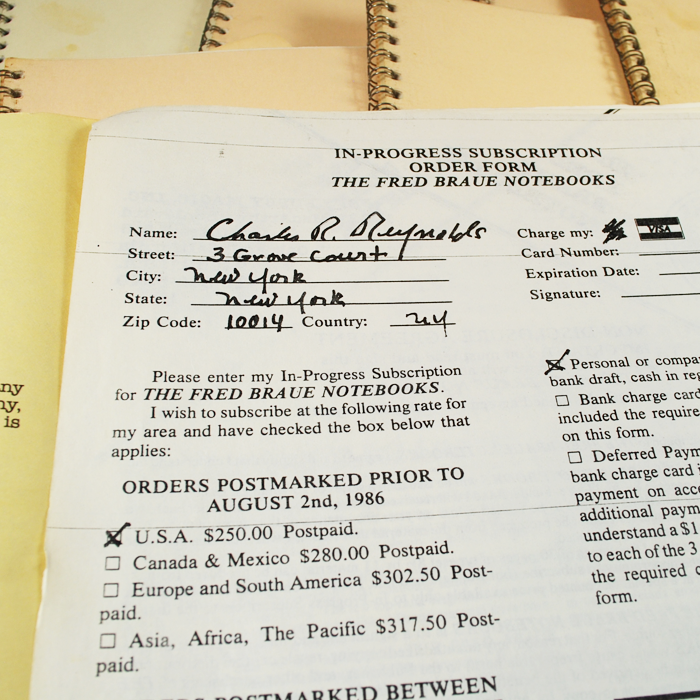 IN-PROGRESS SUBSCRIPTION
ORDER FORM
THE FRED BRAUE NOTEBOOKS
Name: Charles R. Reynolds
Street: 3 Grove Court
City: New York
State: New York
Zip Code: 10014 Country: NY
Charge my: VISA
Card Number:
Expiration Date:
Signature:
Please enter my In-Progress Subscription
for THE FRED BRAUE NOTEBOOKS.
I wish to subscribe at the following rate for
my area and have checked the box below that
applies:
ORDERS POSTMARKED PRIOR TO
AUGUST 2nd, 1986
U.S.A. $250.00 Postpaid.
Canada & Mexico $280.00 Postpaid.
Europe and South America $302.50 Post-
paid.
Asia, Africa, The Pacific $317.50 Post-
paid.
POSTMARKED BETWEEN
Personal or compa
bank draft, cash in reg
Bank charge card
included the require
on this form.
Deferred Paym
bank charge card i
payment on acc
additional paym
understand a $1
to each of the 3
the required c
form.
ny
ny,
is